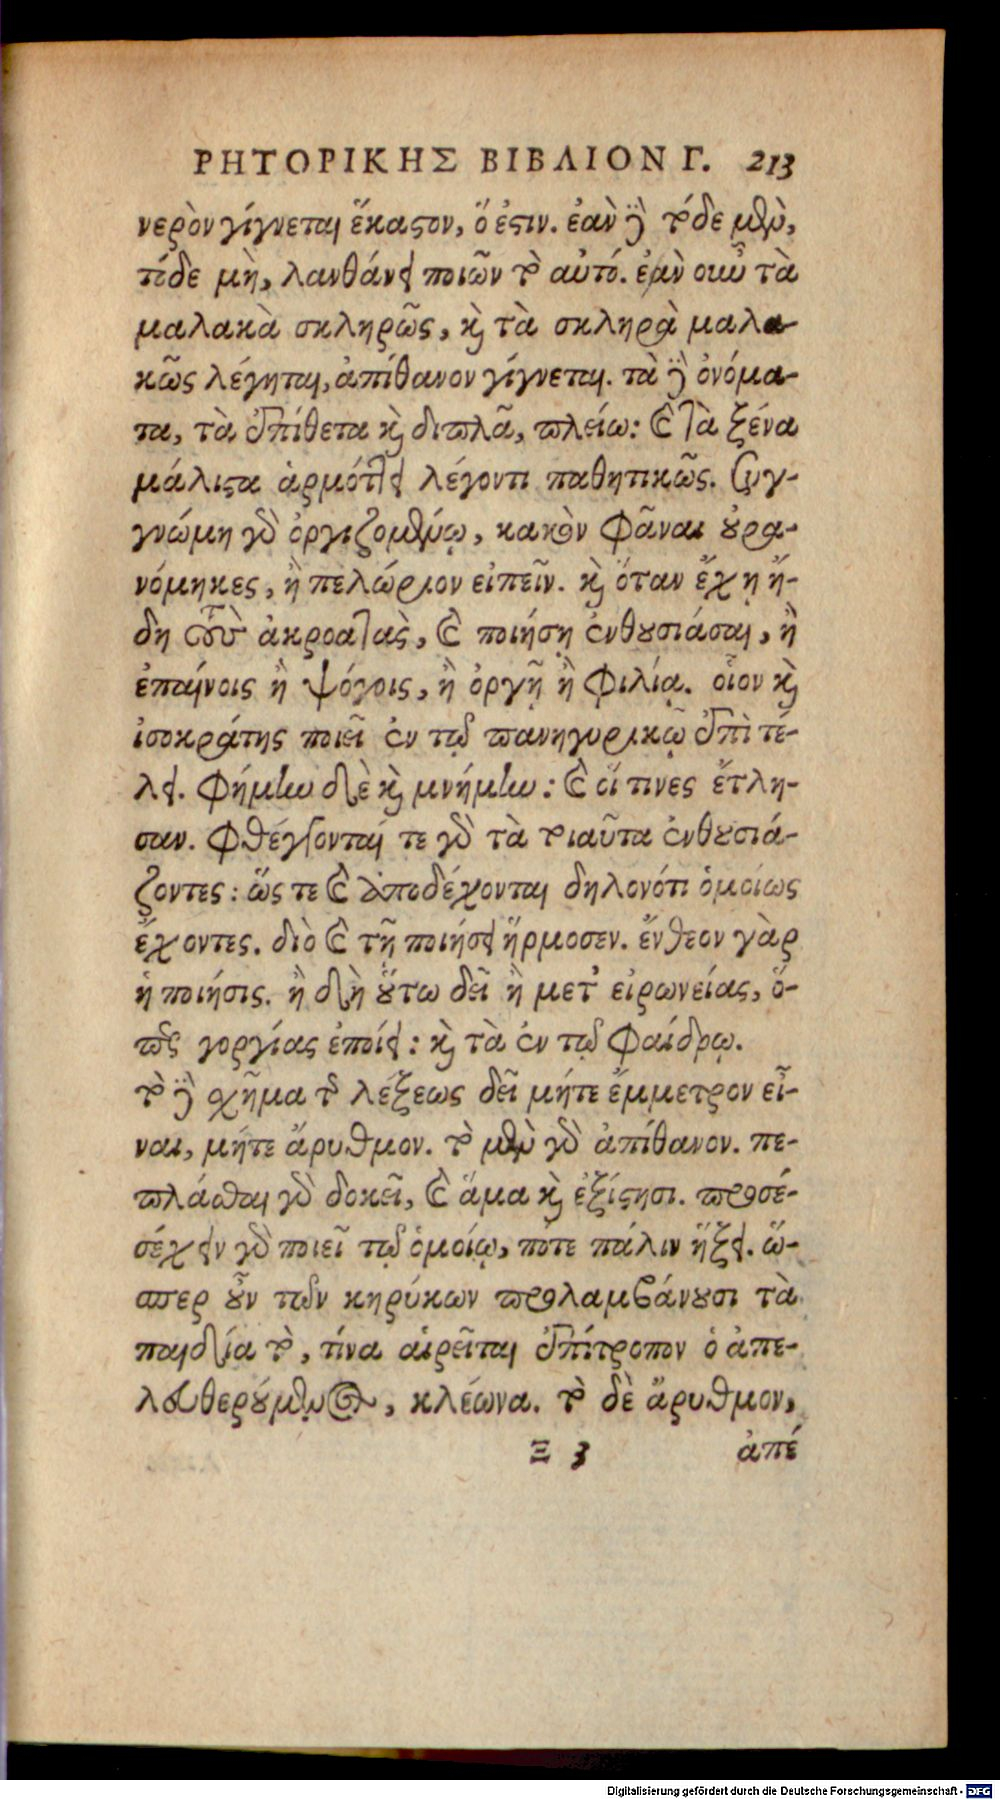 ΡΗΤΟΡΙΚΗΣ ΒΙΒΛΙΟΝ Γ. 213
νερὸν γίγνεται ἕκαστον, ὅ ἐστιν. ἐὰν δὲ τόδε μὲν,
τόδε μὴ, λανθάνει ποιῶν τὸ αὐτό. ἐὰν οὖν τὰ
μαλακὰ σκληρῶς, καὶ τὰ σκληρὰ μαλα-
κῶς λέγηται, ἀπίθανον γίγνεται. τὰ δὲ ὀνόμα-
τα, τὰ ἐπίθετα καὶ διπλᾶ, πλείω: καὶ τὰ ξένα
μάλιστα ἁρμόττει λέγοντι παθητικῶς. συγ-
γνώμη γὰρ ὀργιζομένῳ, κακὸν φᾶναι οὐρα-
νόμηκες, ἢ πελώριον εἰπεῖν. καὶ ὅταν ἔχῃ ἤ-
δη τοὺς ἀκροατὰς, καὶ ποιήσῃ ἐνθουσιάσαι, ἢ
ἐπαίνοις ἢ ψόγοις, ἢ ὀργῇ ἢ φιλίᾳ. οἷον καὶ
ἰσοκράτης ποιεῖ ἐν τῷ πανηγυρικῷ ἐπὶ τέ-
λει. φήμην δὲ καὶ μνήμην: καὶ οἵ τινες ἔτλη-
σαν. φθέγγονταί τε γὰρ τὰ τοιαῦτα ἐνθουσιά-
ζοντες: ὥς τε καὶ ἀποδέχονται δηλονότι ὁμοίως
ἔχοντες. διὸ καὶ τῇ ποιήσει ἥρμοσεν. ἔνθεον γὰρ
ἡ ποιήσις. ἢ δὴ οὕτω δεῖ ἢ μετ' εἰρωνείας, ὅ-
περ γοργίας ἐποίει: καὶ τὰ ἐν τῷ φαίδρῳ.
τὸ δὲ σχῆμα τῆς λέξεως δεῖ μήτε ἔμμετρον εἶ-
ναι, μήτε ἄρυθμον. τὸ μὲν γὰρ ἀπίθανον. πε-
πλάσθαι γὰρ δοκεῖ, καὶ ἅμα καὶ ἐξίστησι. προσέ-
σέχειν γὰρ ποιεῖ τῷ ὁμοίῳ, πότε πάλιν ἥξει. ὥ-
σπερ οὖν τῶν κηρύκων προλαμβάνουσι τὰ
παιδία τὸ, τίνα αἱρεῖται ἐπίτροπον ὁ ἀπε-
λευθερούμενος, κλέωνα. τὸ δὲ ἄρυθμον,
Ξ 3 ἀπέ
Digitalisierung gefördert durch die Deutsche Forschungsgemeinschaft - DFG